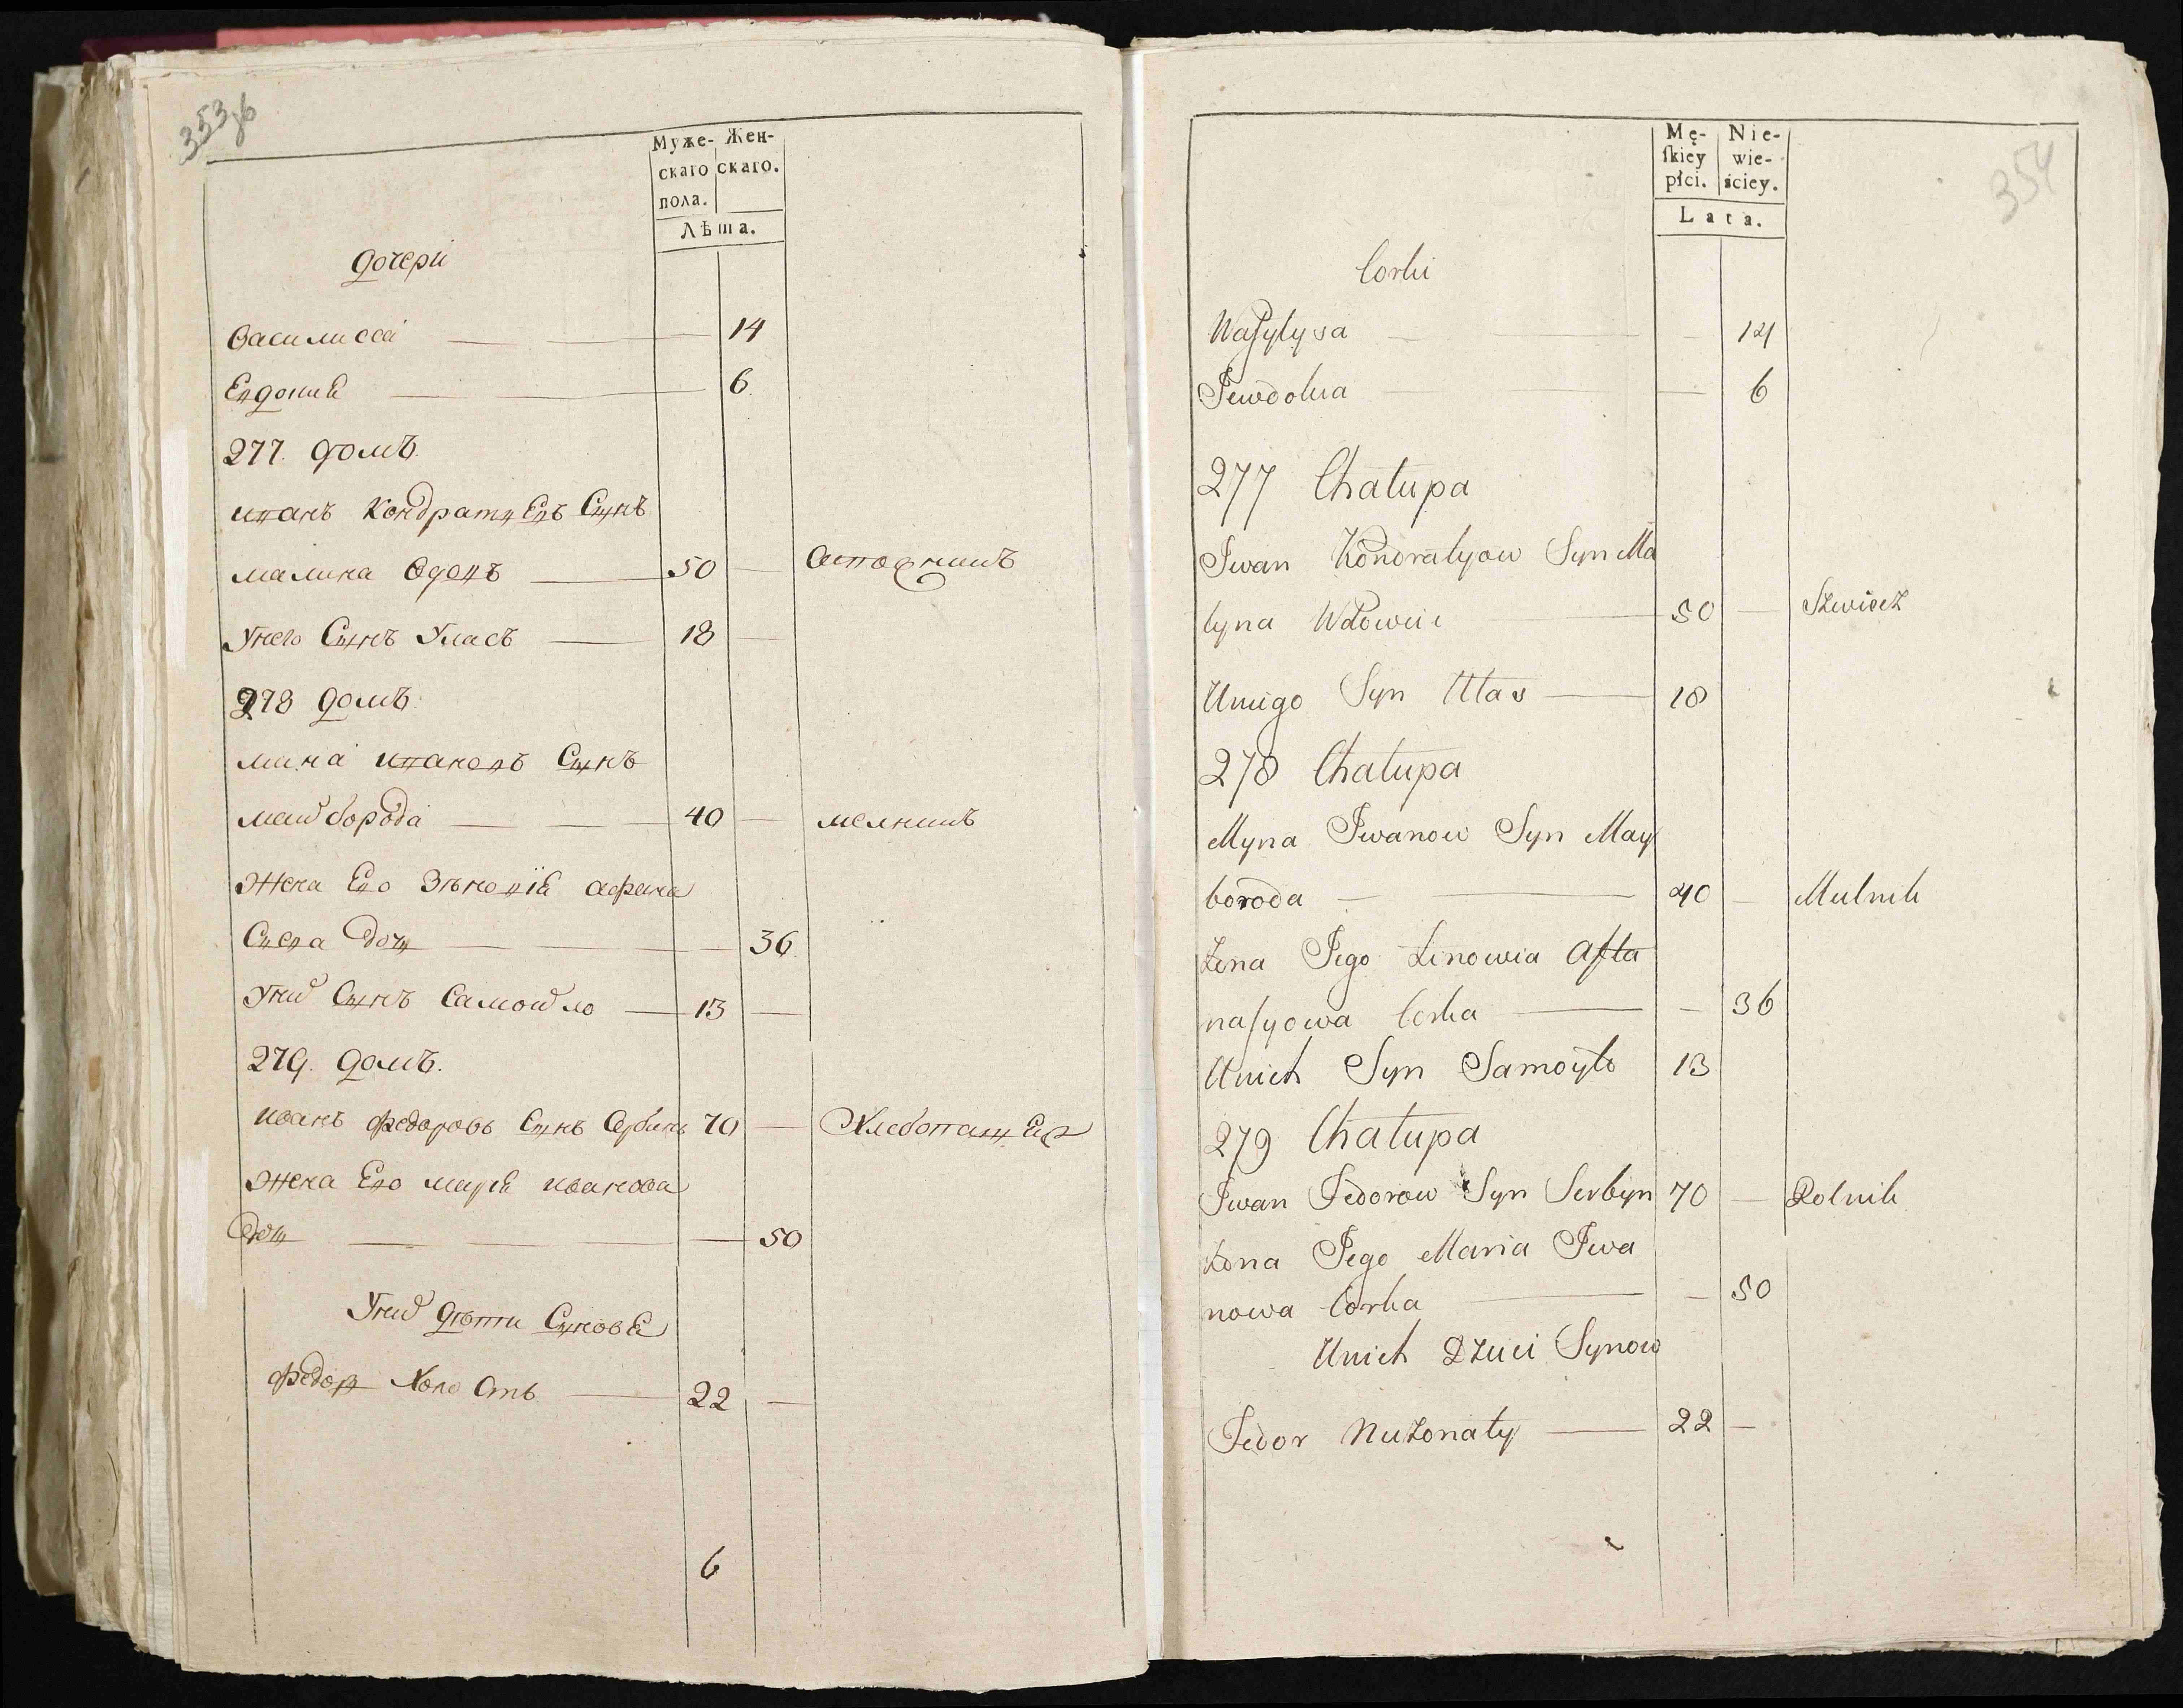 353зв
Муже- Жен-
скаго скаго.
пола.
Лѣта.
дочери
Василисса 14
Евдокия 6
277. домъ.
иванъ Кондратьевъ Сынъ
малина Вдовъ 50
Унего Сынъ Уласъ 18
278 домъ
мина ивановъ Сынъ
май борода 40 мелникъ
жена Его Зѣновїя афана
Сиева дочь 36
Уних Сынъ Самойло 13
279. домъ.
иванъ федоровъ Сынъ Сербинъ 70 Хлебопашец
жена Его мария иванова
дочь 50
Уних дѣти Сыновя
федор Холостъ 22
6
354
Mę- Nie-
skiey wie-
płci. ściey.
Lata.
Corki
Wasylysa 14
Jewdokia 6
277 Chałupa
Iwan Kondratyow Syn Ma
lyna Wdowiec 50 Szwiecz
Uniego Syn Ułas 18
278 Chałupa
Myna Iwanow Syn May
boroda 40 Mielnik
Żona Jego Zinowia Afta
nasyowa Corka 36
Unich Syn Samoyło 13
279 Chałupa
Iwan Fedorow Syn Serbyn 70 Rolnik
Żona Jego Maria Iwa
nowa Corka 50
Unich Dzieci Synow
Fedor Nieżonaty 22